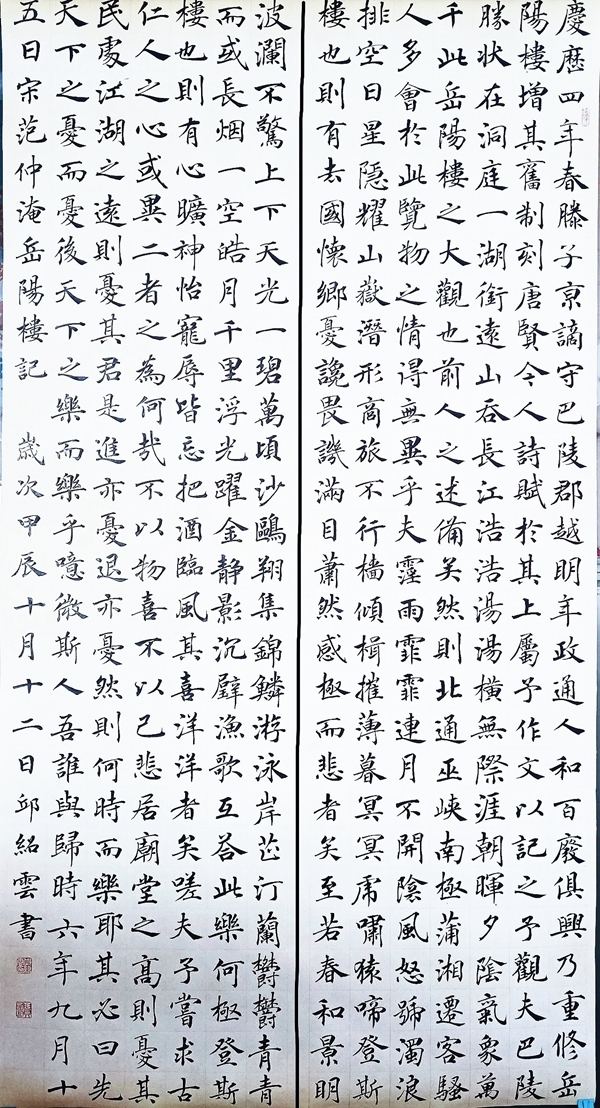 慶歷四年春滕子京謫守巴陵郡越明年政通人和百廢俱興乃重修岳
陽樓增其舊制刻唐賢今人詩賦於其上屬予作文以記之予觀夫巴陵
勝狀在洞庭一湖銜遠山吞長江浩浩湯湯橫無際涯朝暉夕陰氣象萬
千此岳陽樓之大觀也前人之述備矣然則北通巫峽南極瀟湘遷客騷
人多會於此覽物之情得無異乎夫霪雨霏霏連月不開陰風怒號濁浪
排空日星隱耀山嶽潛形商旅不行檣傾楫摧薄暮冥冥虎嘯猿啼登斯
樓也則有去國懷鄉憂讒畏譏滿目蕭然感極而悲者矣至若春和景明
波瀾不驚上下天光一碧萬頃沙鷗翔集錦鱗游泳岸芷汀蘭鬱鬱青青
而或長烟一空皓月千里浮光躍金静影沉璧漁歌互答此樂何極登斯
樓也則有心曠神怡寵辱皆忘把酒臨風其喜洋洋者矣嗟夫予嘗求古
仁人之心或異二者之為何哉不以物喜不以己悲居廟堂之高則憂其
民處江湖之遠則憂其君是進亦憂退亦憂然則何時而樂耶其必曰先
天下之憂而憂後天下之樂而樂乎噫微斯人吾誰與歸時六年九月十
五日宋范仲淹岳陽樓記 歲次甲辰十月十二日邱紹雲書